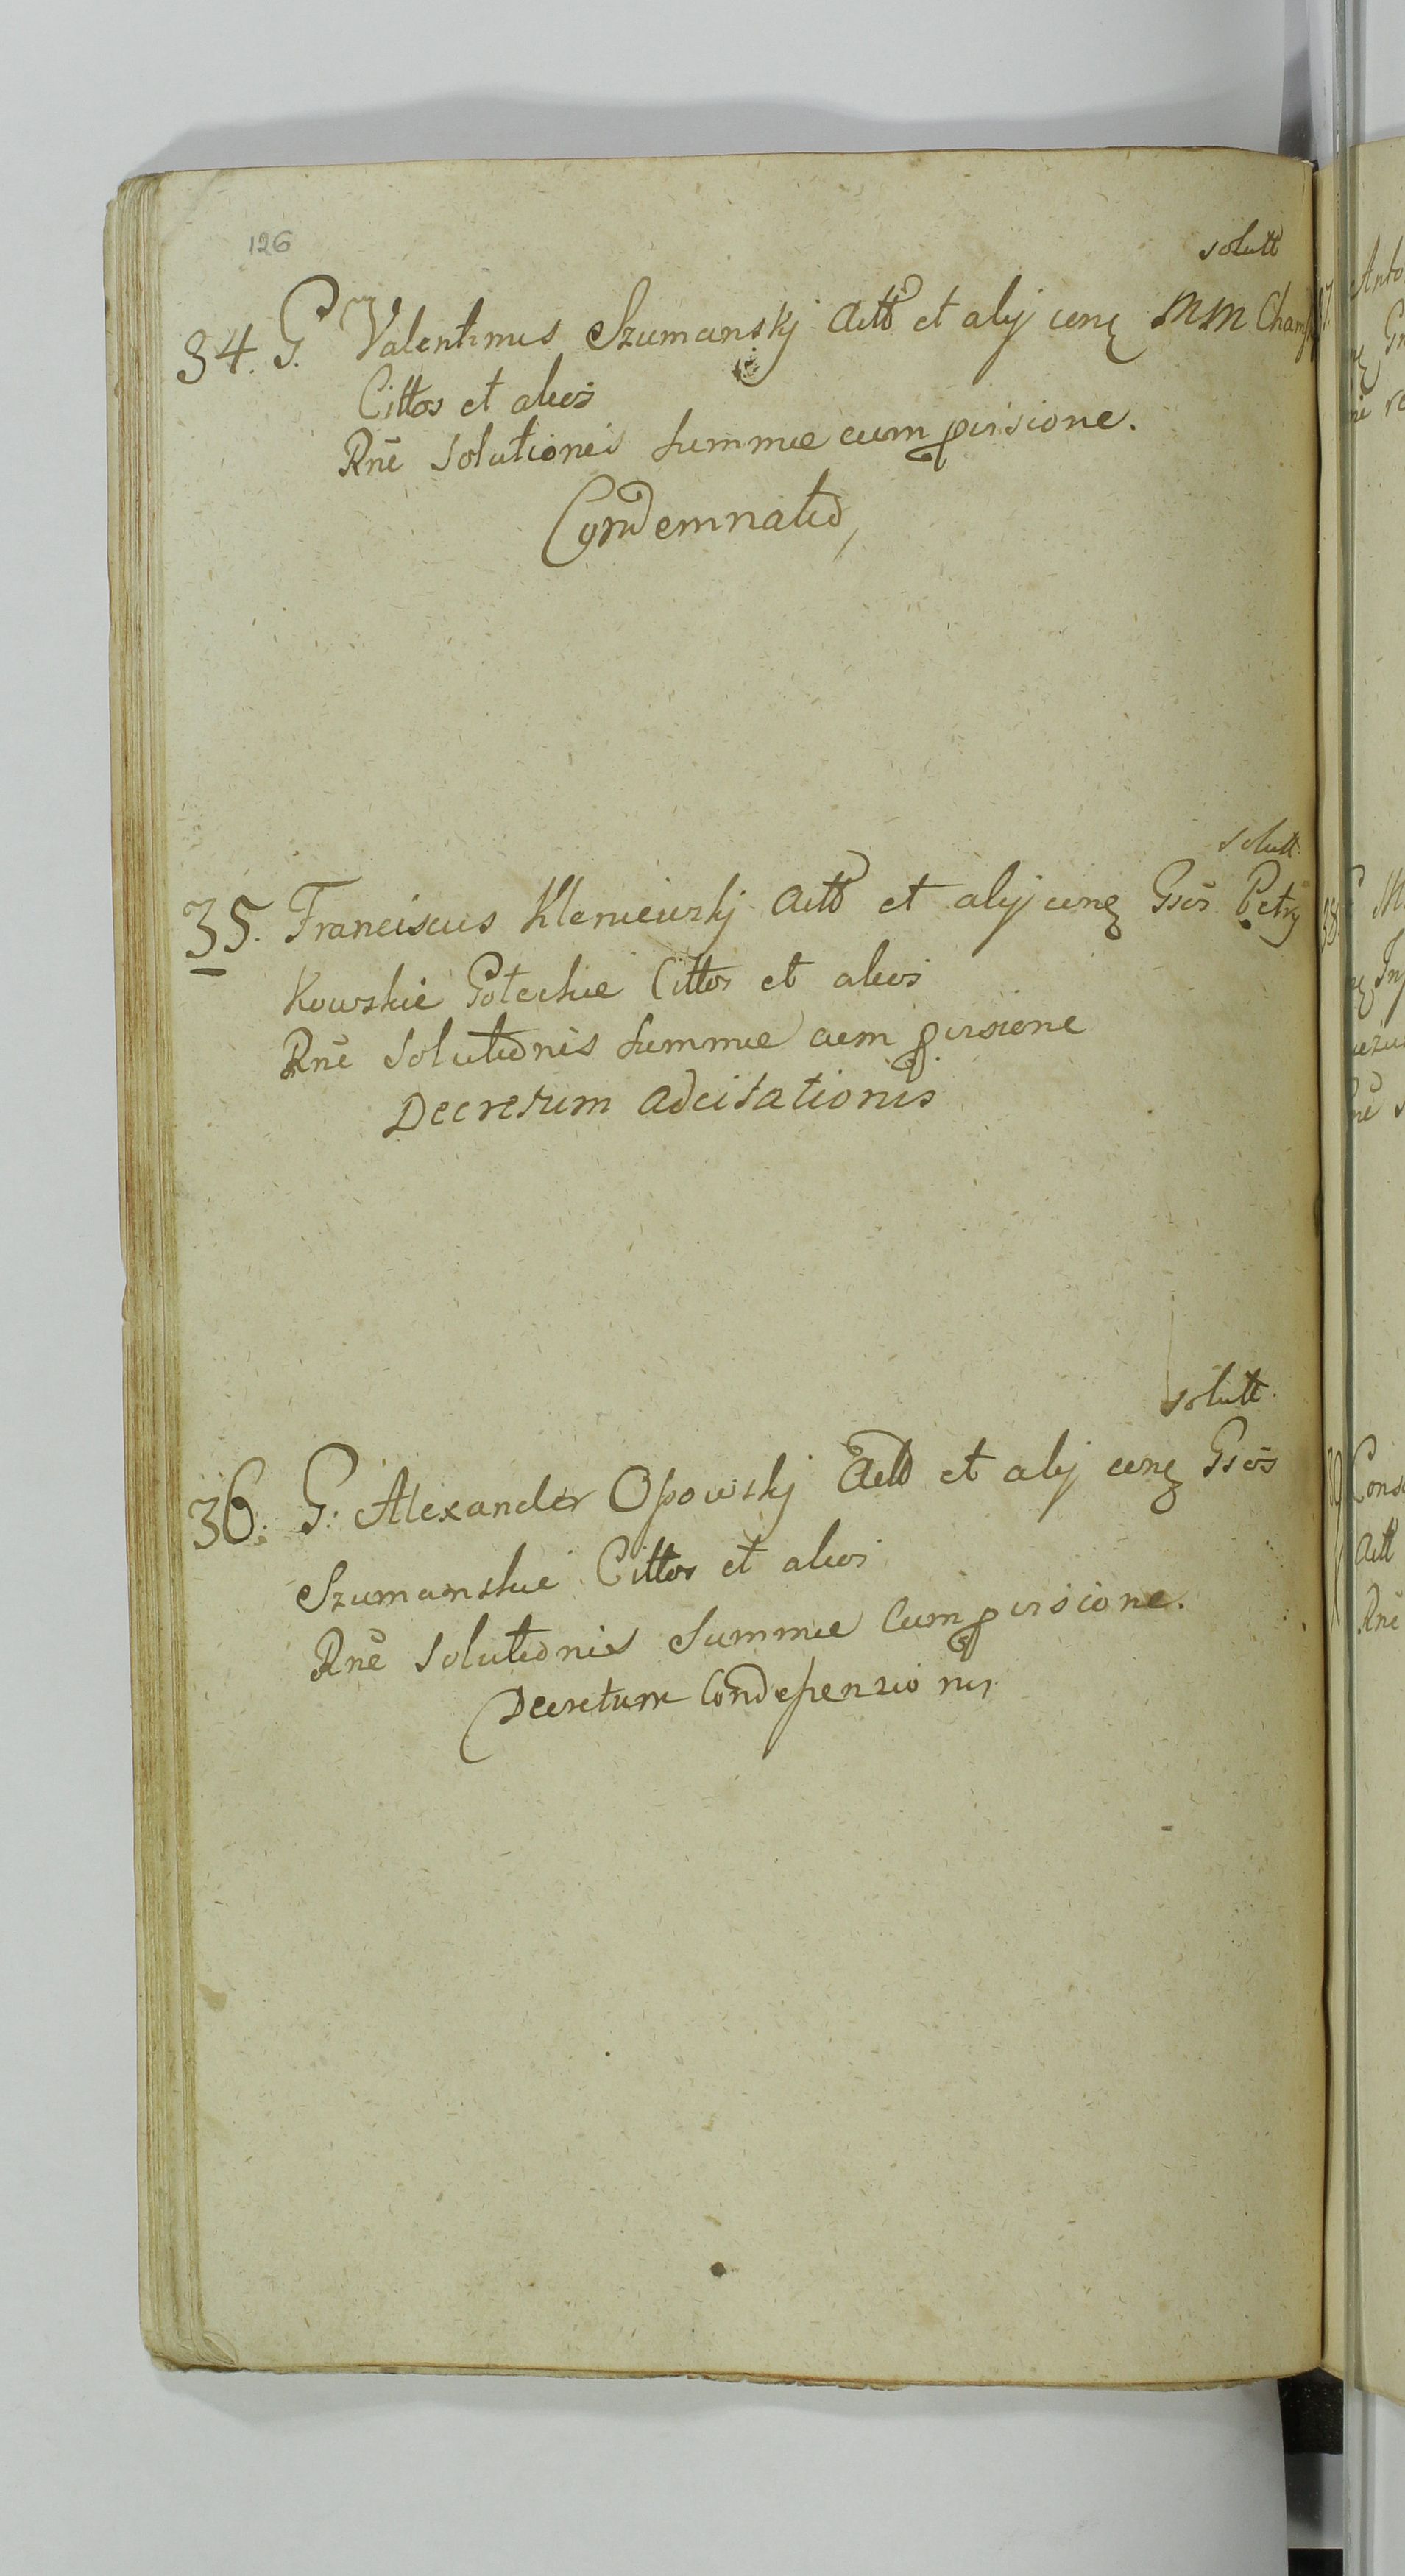 126
solutt
34. G. Valentinus Szumanskj Actt et alij conq MM Cham
Cittos et alios
Rnẽ solutionis summae cum provisione.
Condemnatio
solutt.
35. Franciscus Kleniewskj Actt et alij conq Gsos Petry
Kowskie Potockie Cittos et alios
Rnẽ solutionis summae cum provisione
Decretum adcitationis
solutt.
36. G. Alexander Opowskj Actt et alij conq Gsos
Szumanskie Cittos et alios
Rnẽ solutionis summae Cum provisione.
Decretum Condepensionis